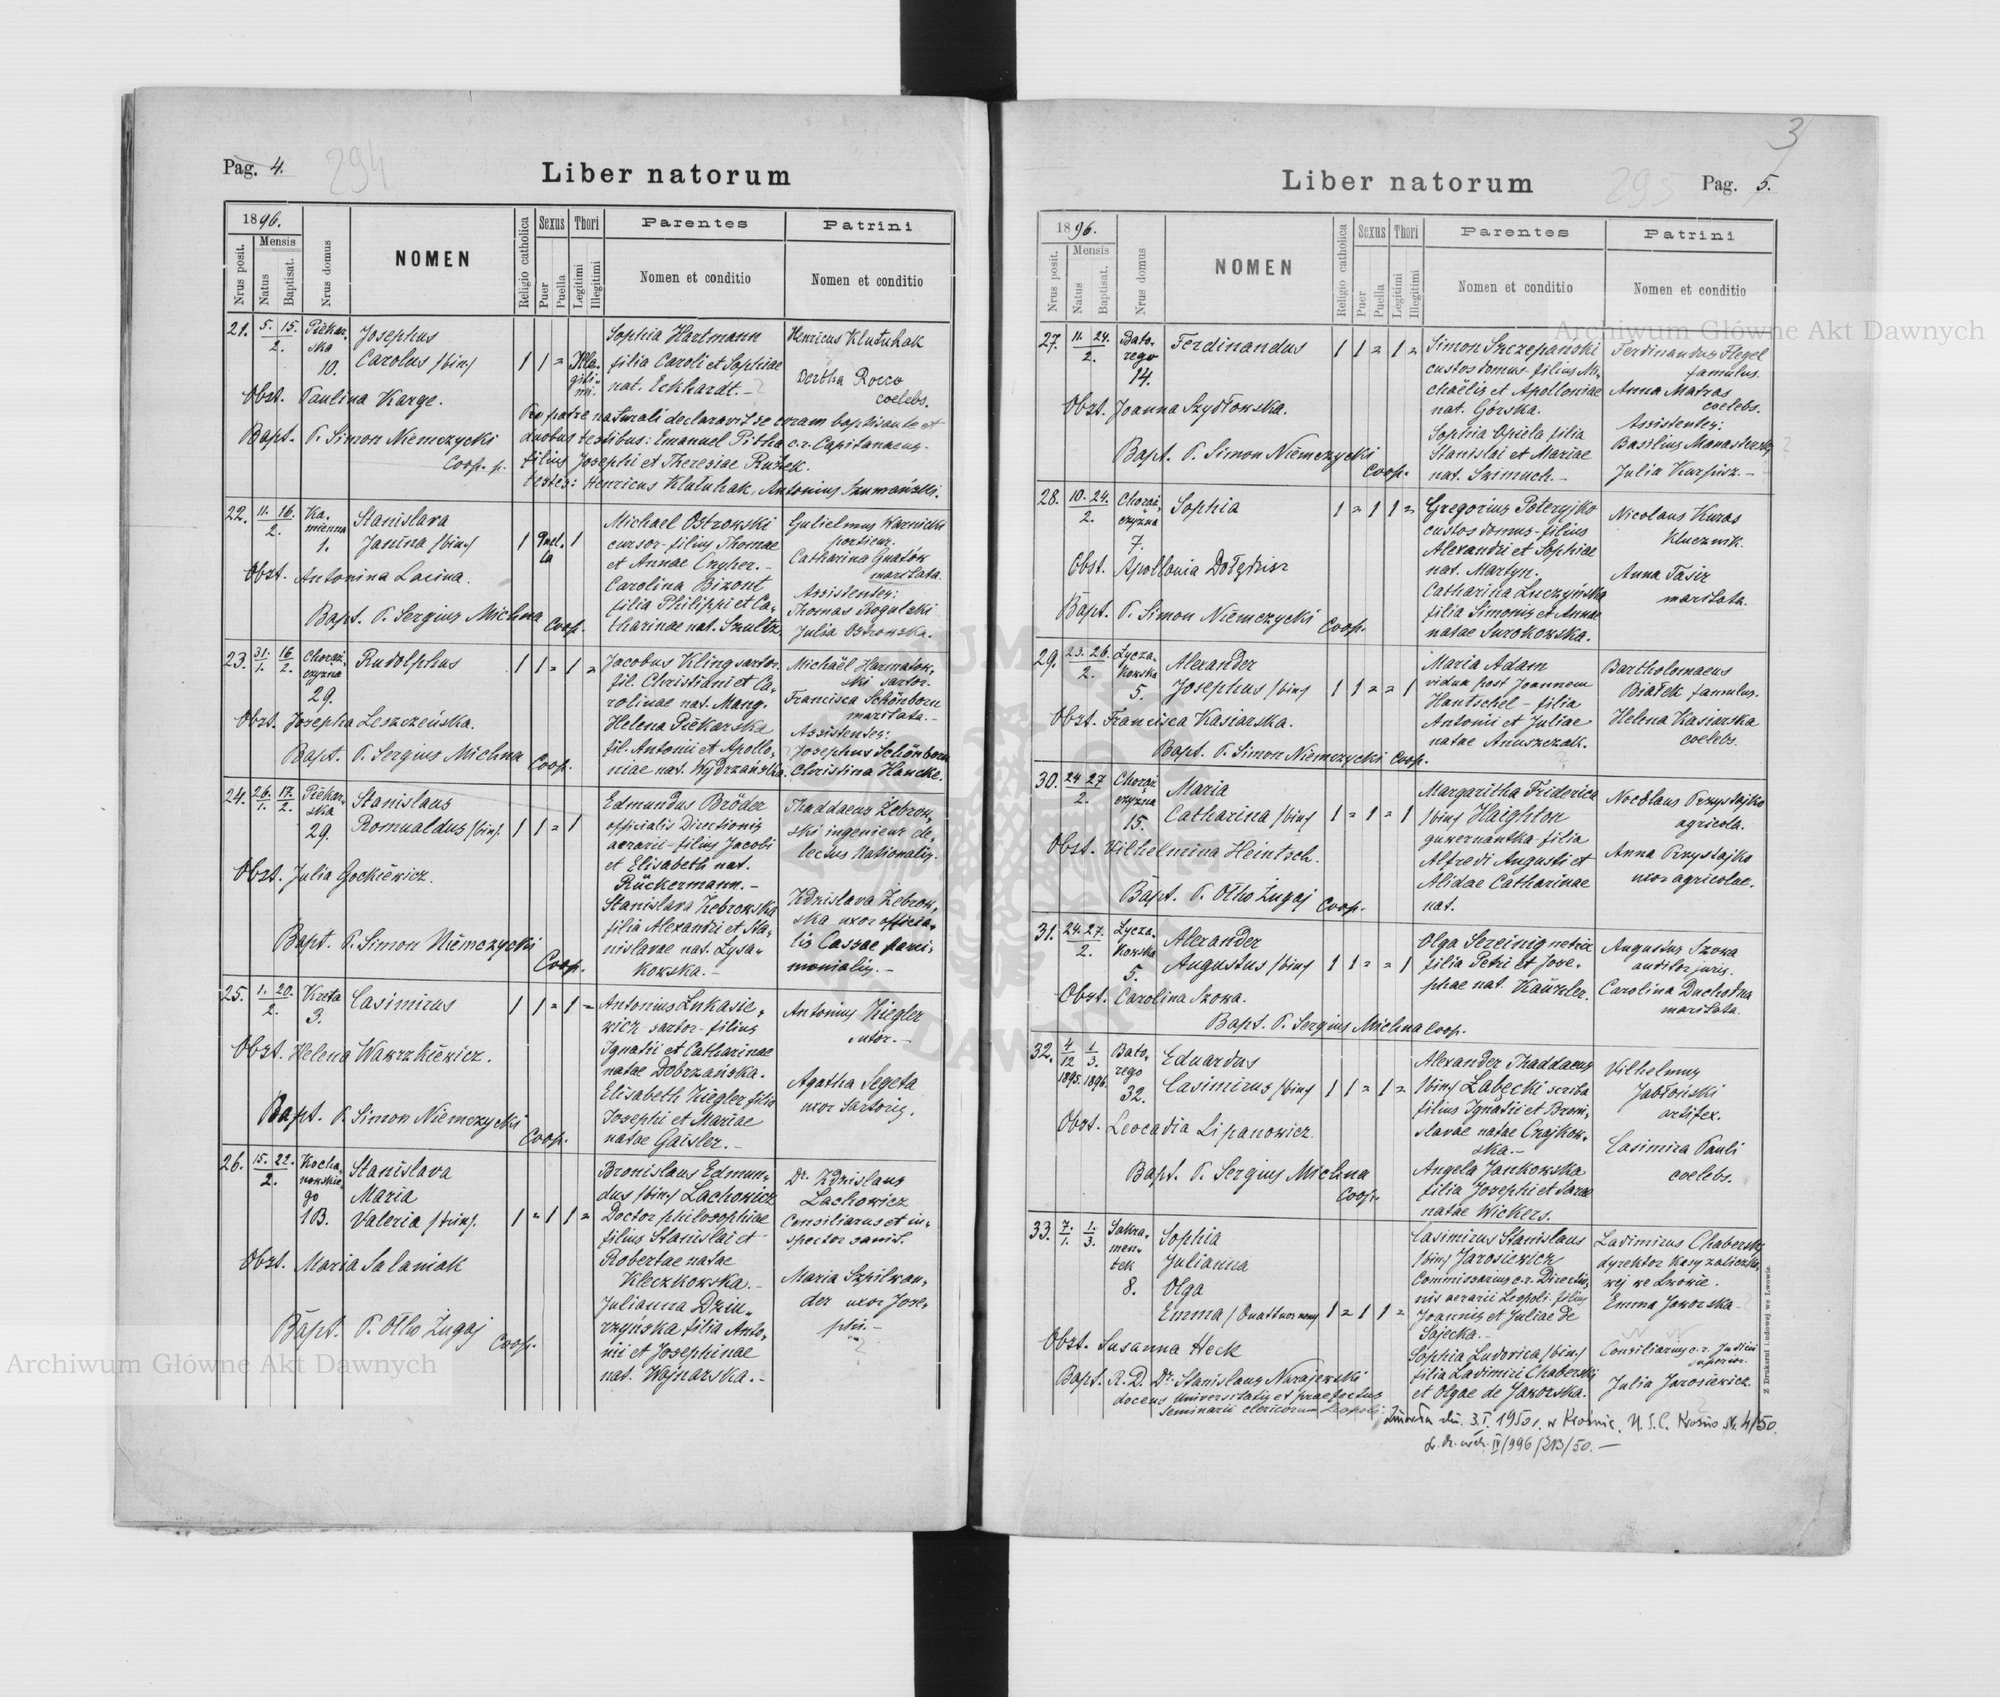 Pag. 4.
294
Liber natorum
1896.
Nrus posit.
Mensis
Natus
Baptisat.
Nrus domus
NOMEN
Religio catholica
Sexus
Puer
Puella
Thori
Legitimi
Illegitimi
Parentes
Nomen et conditio
Patrini
Nomen et conditio
21. 5. 15. Piekar-
2. ska
10.
Josephus
Carolus /bin/
1 1 = Ille-
giti-
mi.
Sophia Hartmann
filia Caroli et Sophiae
nat. Eckhardt. -
Henricus Klutuhak
Bertha Rocco
coelebs.
Obst. Paulina Karge.
Bapt. P. Simon Niemczycki
Coop. p.
Pro patre naturali declaravit se coram baptisante et
duobus testibus: Emanuel Pitha c.r. Capitanaeus.
filius Josephi et Theresiae Ružek.
testes: Henricus Klutuhak, Antonius Szumański.
22. 11. 16. Ka-
2. mienna
1.
Stanislava
Janina /bin./
1 Puel- 1
la
Michael Ostrowski
cursor - filius Thomae
et Annae Cnyher. -
Carolina Bizont
filia Philippi et Ca-
tharinae nat. Szultz.
Gulielmus Warnicki
portier.
Catharina Gnatów
maritata.
Assistentes:
Thomas Rogulski
Julia Ostrowska.
Obst. Antonina Lacina.
Bapt. P. Sergius Michna
Coop.
23. 31. 16. Chorąż-
1. 2. czyzna
29.
Rudolphus
1 1 = 1 =
Jacobus Kling sartor.
fil. Christiani et Ca-
rolinae nat. Mang.
Helena Piekarska
fil. Antonii et Apollo-
niae nat. Wydrzańska.
Michaël Harmatow-
ski sartor.
Francisca Schönborn
maritata. -
Assistentes:
Josephus Schönborn
Christina Hancke.
Obst. Josepha Leszczeńska.
Bapt. P. Sergius Michna
Coop.
24. 26. 17. Piekar-
1. 2. ska
29.
Stanislaus
Romualdus /bin/.
1 1 = 1
Edmundus Bröder
officialis Directionis
aerarii - filius Jacobi
et Elisabeth nat.
Rückermann. -
Stanislava Żebrowska
filia Alexandri et Sta-
nislavae nat. Łysa-
kowska. -
Thaddaeus Żebrow-
ski ingenieur de-
lectus Nationalis.
Zdzislava Żebrow-
ska uxor officia-
lis Cassae parci-
monialis. -
Obst. Julia Gockiewicz.
Bapt. P. Simon Niemczycki
Coop.
25. 1. 20. Kreta
2. 3.
Casimirus
1 1 = 1 =
Antonius Łukasie-
wicz - sartor - filius
Ignatii et Catharinae
natae Dobrzańska.
Elisabeth Ziegler filia
Josephi et Mariae
natae Gaisler. -
Antonius Ziegler
sutor. -
Agatha Segeta
uxor sartoris.
Obst. Helena Wawrzkiewicz.
Bapt. P. Simon Niemczycki
Coop.
26. 15. 22. Kocha-
2. nowskie-
go
1B.
Stanislava
Maria
Valeria /trin/.
1 = 1 1 =
Bronislaus Edmun-
dus /bin./ Lachowicz
Doctor philosophiae
filius Stanislai et
Robertae natae
Kleczkowska. -
Julianna Dziu-
rzyńska filia Anto-
nii et Josephinae
nat. Wojnarska. -
Dr. Zdzislaus
Lachowicz
Consiliarus et in-
spector sanit.
Maria Szpilwan-
der uxor Jose-
phi. -
Obst. Maria Salaniak
Bapt. P. Otto Żugaj
Coop.
3
Liber natorum
295
Pag. 5.
1896.
Nrus posit.
Mensis
Natus
Baptisat.
Nrus domus
NOMEN
Religio catholica
Sexus
Puer
Puella
Thori
Legitimi
Illegitimi
Parentes
Nomen et conditio
Patrini
Nomen et conditio
27. 11. 24. Bato-
2. rego
14.
Ferdinandus
1 1 = 1 =
Simon Szczepanski
custos domus - filius Mi-
chaëlis et Apolloniae
nat. Górska.
Sophia Opiela filia
Stanislai et Mariae
nat. Szimuch. -
Ferdinandus Flegel
famulus.
Anna Matras
coelebs.
Assistentes:
Basilius Manasterski
Julia Karpisz. -
Obst. Joanna Szydłowska.
Bapt. P. Simon Niemczycki
Coop.
28. 10. 24. Chorąż-
2. czyzna
7.
Sophia
1 = 1 1 =
Gregorius Poteryjko
custos domus - filius
Alexandri et Sophiae
nat. Martyn.
Catharina Łuczyńska
filia Simonis et Annae
natae Surokowska.
Nicolaus Kuras
klucznik.
Anna Tasiz
maritata.
Obst. Apollonia Dołędzisz
Bapt. P. Simon Niemczycki
Coop.
29. 23. 26. Łycza-
2. kowska
5.
Alexander
Josephus /bin/
1 1 = = 1
Maria Adam
vidua post Joannem
Hantschel - filia
Antonii et Juliae
natae Anuszczak.
Bartholomaeus
Białek famulus.
Helena Kasiarska
coelebs.
Obst. Francisca Kasiarska.
Bapt. P. Simon Niemczycki Coop.
30. 24 27 Chorąż-
2. czyzna
15.
Maria
Catharina /bin/
1 = 1 = 1
Margaritha Friderica
/bin/ Haighton
guwernantka - filia
Alfredi Augusti et
Alidae Catharinae
nat.
Nicolaus Przystajko
agricola.
Anna Przystajko
uxor agricolae.
Obst. Vilhelmina Heintsch.
Bapt. P. Otto Żugaj Coop.
31. 24. 27. Łycza-
2. kowska
5.
Alexander
Augustus /bin/
1 1 = = 1
Olga Sereinig netrix
filia Petri et Jose-
phae nat. Kanzler.
Augustus Szowa
auditor juris.
Carolina Duchotna
maritata.
Obst. Carolina Szowa.
Bapt. P. Sergius Michna Coop.
32. 4 1 Bato-
12 3. rego
1895. 1896. 32.
Eduardus
Casimirus /bin/
1 1 = 1 =
Alexander Thaddaeus
/bin/ Łabęcki scriba
filius Ignatii et Broni-
slavae natae Czajkow-
ska. -
Angela Jankowska
filia Josephi et Sarae
natae Wickers.
Vilhelmus
Jabłoński
artifex.
Casimira Pauli
coelebs.
Obst. Leocadia Lipanowicz.
Bapt. P. Sergius Michna
Coop.
33. 7. 1. Sakra-
1. 3. men-
tek
8.
Sophia
Julianna
Olga
Emma /Quattuor nom/
1 = 1 1 =
Casimirus Stanislaus
/bin/ Jarosiewicz
Commissarius c.r. Directio-
nis aerarii Leopoli - filius
Joannis et Juliae de
Sajecka. -
Sophia Ludovica /bin/
filia Ladimiri Chaberski
et Olgae de Jaworska.
Ladimirus Chaberski
dyrektor kasy zaliczko-
wej we Lwowie.
Emma Jaworska -
Consiliarius c.r. Judicii
superior.
Julia Jarosiewicz.
Obst. Susanna Heck
Bapt. R. D. Dr. Stanislaus Narajewski
docens universitatis et praefectus
seminarii clericorum Leopoli.
Zmarła dn. 3.I.1950 r. w Krośnie. U.S.C. Krosno Nr. 4/50.
IV/996/ZB/50. -
Z Drukarni Ludowej we Lwowie.
Archiwum Główne Akt Dawnych
Archiwum Główne Akt Dawnych